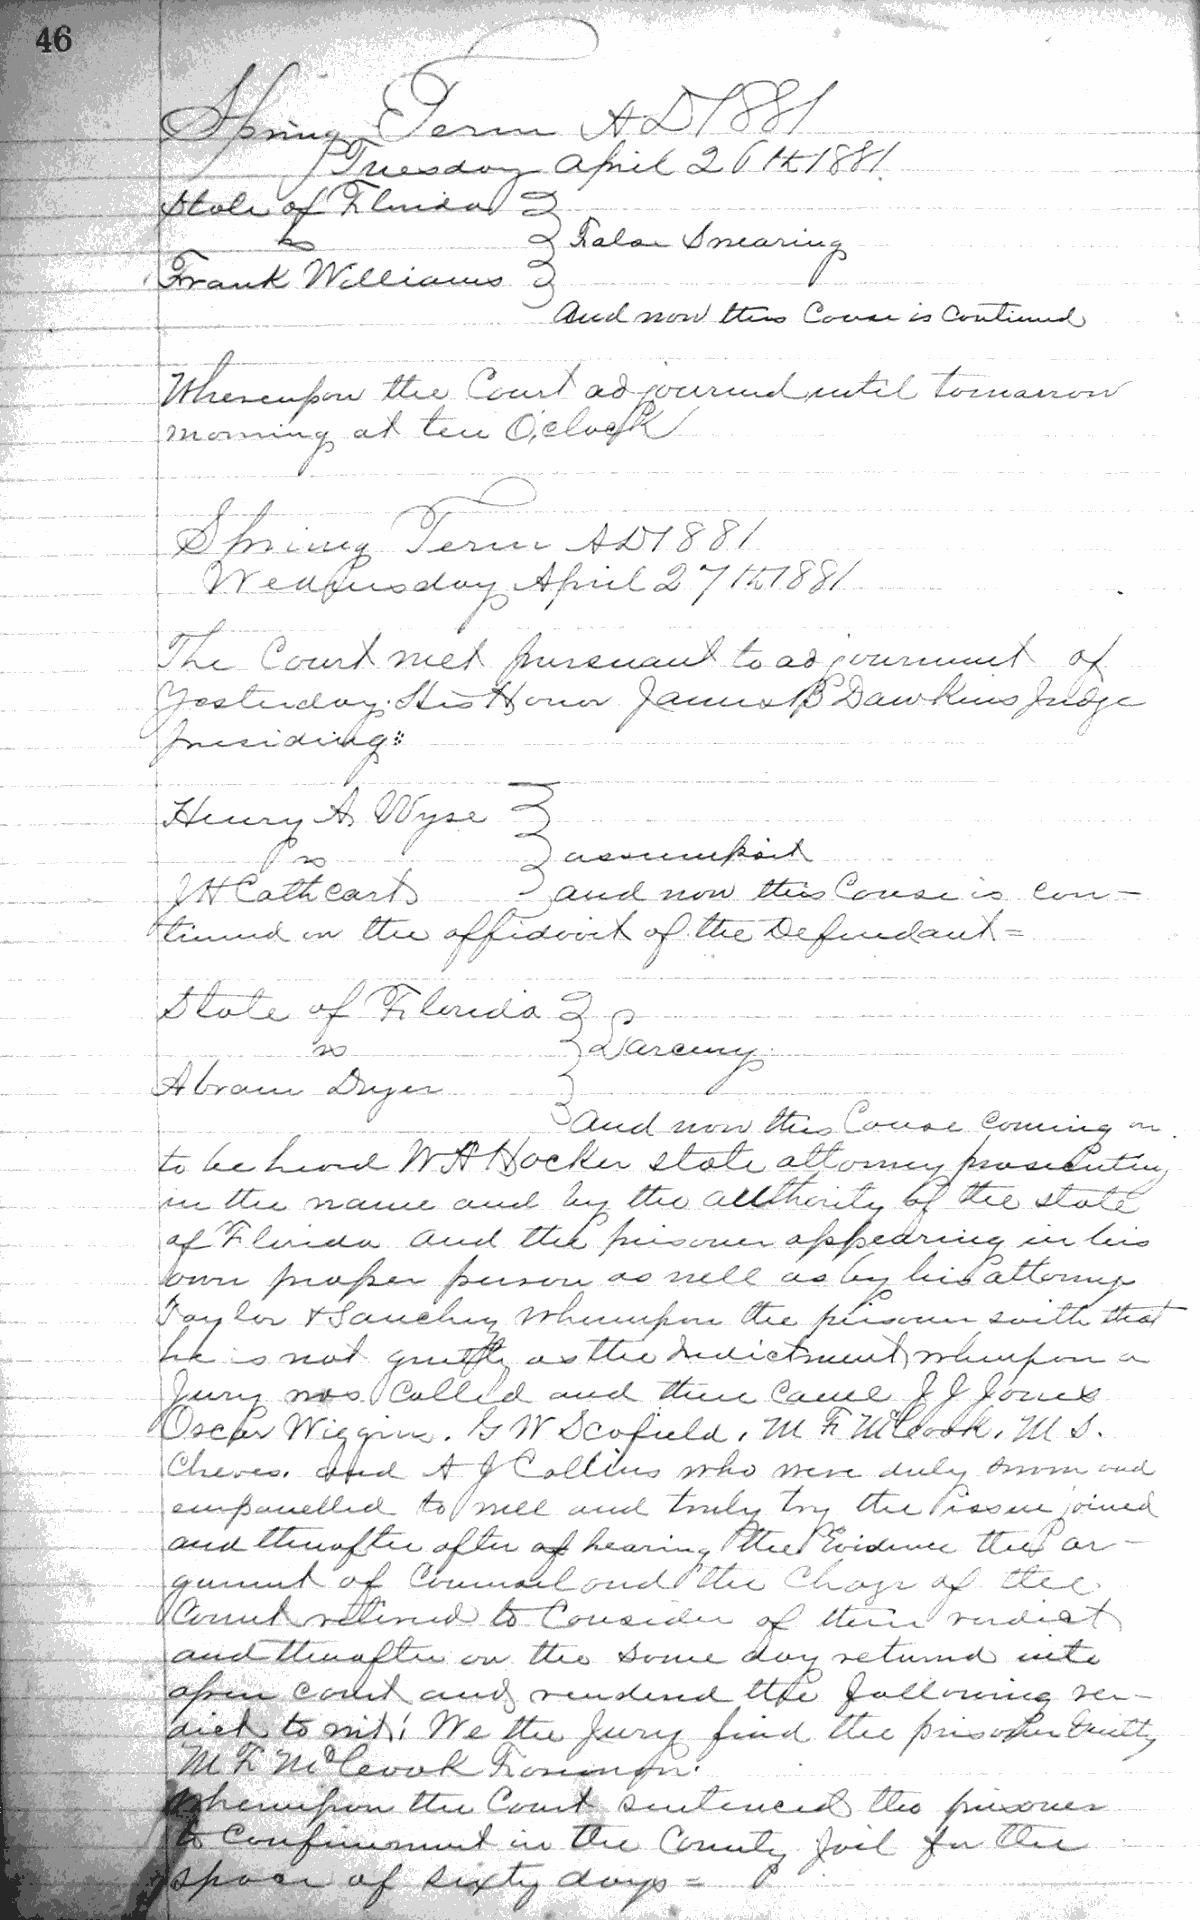 46
Spring Term AD 1881
Tuesday April 26th 1881
State of Florida
vs
False Swearing
Frank Williams
And now this Cause is Continued
Whereupon the Court adjourned until tomorrow
morning at ten O'clock
Spring Term AD 1881
Wednesday April 27th 1881
The Court met pursuant to adjournment of
Yesterday. His Honor James B Dawkins Judge
presiding:
Henry A. Wyse
vs
assumpsit
J H Cathcart
and now this Cause is con-
tinued on the affidavit of the Defendant =
State of Florida
vs
Larceny
Abram Dyer
And now this Cause coming on
to be heard W A Hocker state attorney prosecuting
in the name and by the authority of the state
of Florida and the prisoner appearing in his
own proper person as well as by his attorneys
Taylor & Sanchez whereupon the prisoner saith that
he is not guilty as the Indictment whereupon a
Jury was Called and then came J J Jones
Oscar Wiggins. G W Scofield, M F McCook, M S.
Cheves. and A J Collins who were duly sworn and
empanelled to well and truly try the issue joined
and thereafter after of hearing the Evidence the ar-
gument of Counsel and the Charge of the
Court retired to Consider of their verdict
and thereafter on the same day returned into
open court and rendered the following ver-
dict to wit! We the Jury find the prisoner Guilty
M F McCook Foreman.
Whereupon the Court sentenced the prisoner
to confinement in the County Jail for the
space of sixty days =